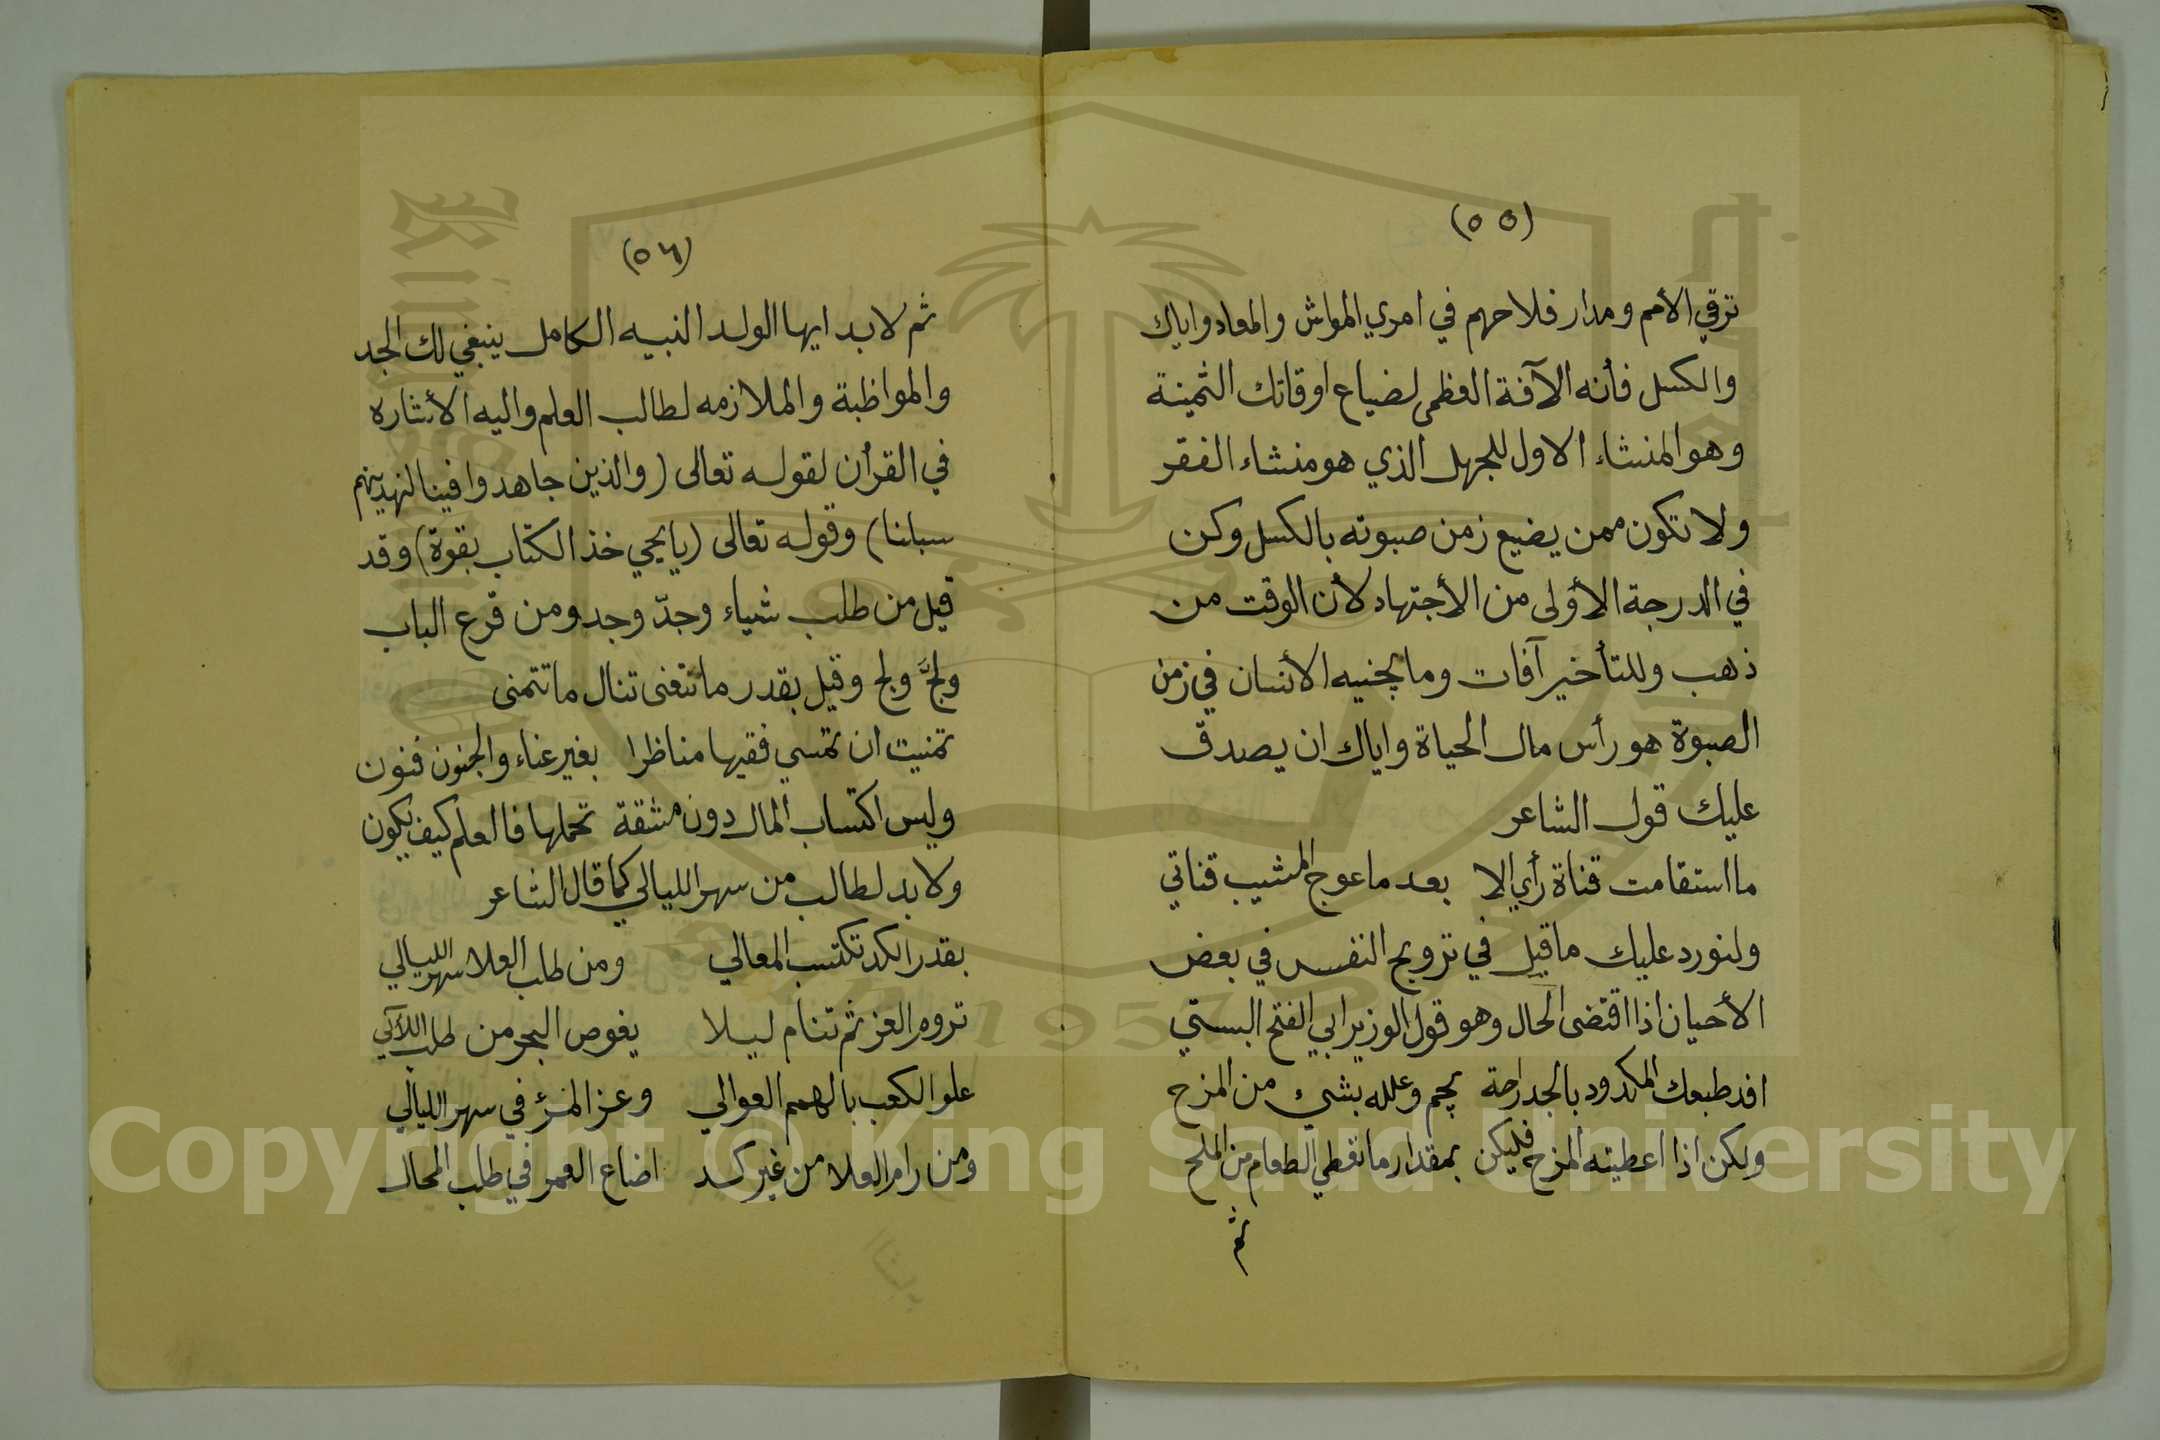 (٥٥)
ترقي الأمم ومدار فلاحهم في امري المواش والمعاد واياك
والكسل فأنه الآفة العظمى لضياع اوقاتك الثمينة
وهو المنشاء الاول للجهل الذي هو منشاء الفقر
ولا تكون ممن يضيع زمن صبوته بالكسل وكن
في الدرجة الأولى من الأجتهاد لأن الوقت من
ذهب وللتأخير آفات وما يجنيه الأنسان في زمن
الصبوة هو رأس مال الحياة واياك ان يصدق
عليك قول الشاعر
ما استقامت قناة رأي الا بعد ما عوج المشيب قناتي
ولنورد عليك ما قيل في ترويح النفس في بعض
الأحيان اذا اقتضى الحال وهو قول الوزير ابي الفتح البستي
افد طبعك المكدود بالجد راحة يجم وعلله بشئ من المزح
ولكن اذا اعطيته المزح فليكن بمقدار ما تعطي الطعام من الملح
ثم
(٥٦)
ثم لابد ايها الولد النبيه الكامل ينبغي لك الجد
والمواظبة والملازمه لطالب العلم واليه الأشاره
في القرأن لقوله تعالى (والذين جاهدوا فينا لنهدينهم
سبلنا) وقوله تعالى (يايحي خذ الكتاب بقوة) وقد
قيل من طلب شياء وجدّ وجد ومن قرع الباب
ولجَّ ولج وقيل بقدر ما تتعنى تنال ما تتمنى
تمنيت ان تمسي فقيها مناظرا بغير عناء والجنون فنون
وليس اكتساب المال دون مشقة تحملها فالعلم كيف يكون
ولابد لطالب من سهر الليالي كما قال الشاعر
بقدر الكد تكتسب المعالي ومن طلب العلا سهر الليالي
تروم العز ثم تنام ليلا يغوص البحر من طلب اللآلي
علو الكعب بالهمم العوالي وعز المرئ في سهر الليالي
ومن رام العلا من غير كد اضاع العمر في طلب المحال
Copyright © King Saud University
1957